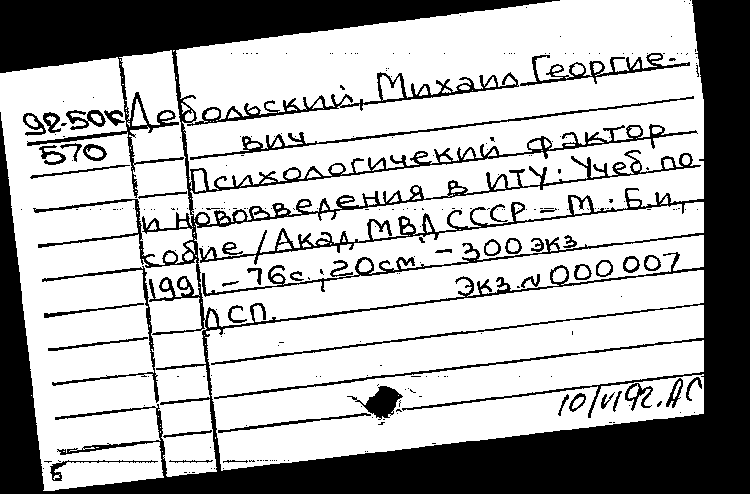 92-50к Дебольский, Михаил Георгие-
570 вич
Психологичекий фактор
и нововведения в ИТУ: Учеб. по-
собие / Акад. МВД СССР – М.: Б.и.,
1991. – 76с.; 20см. – 300 экз.
Экз. № 000007
ДСП.
10/VI92. АС
Б